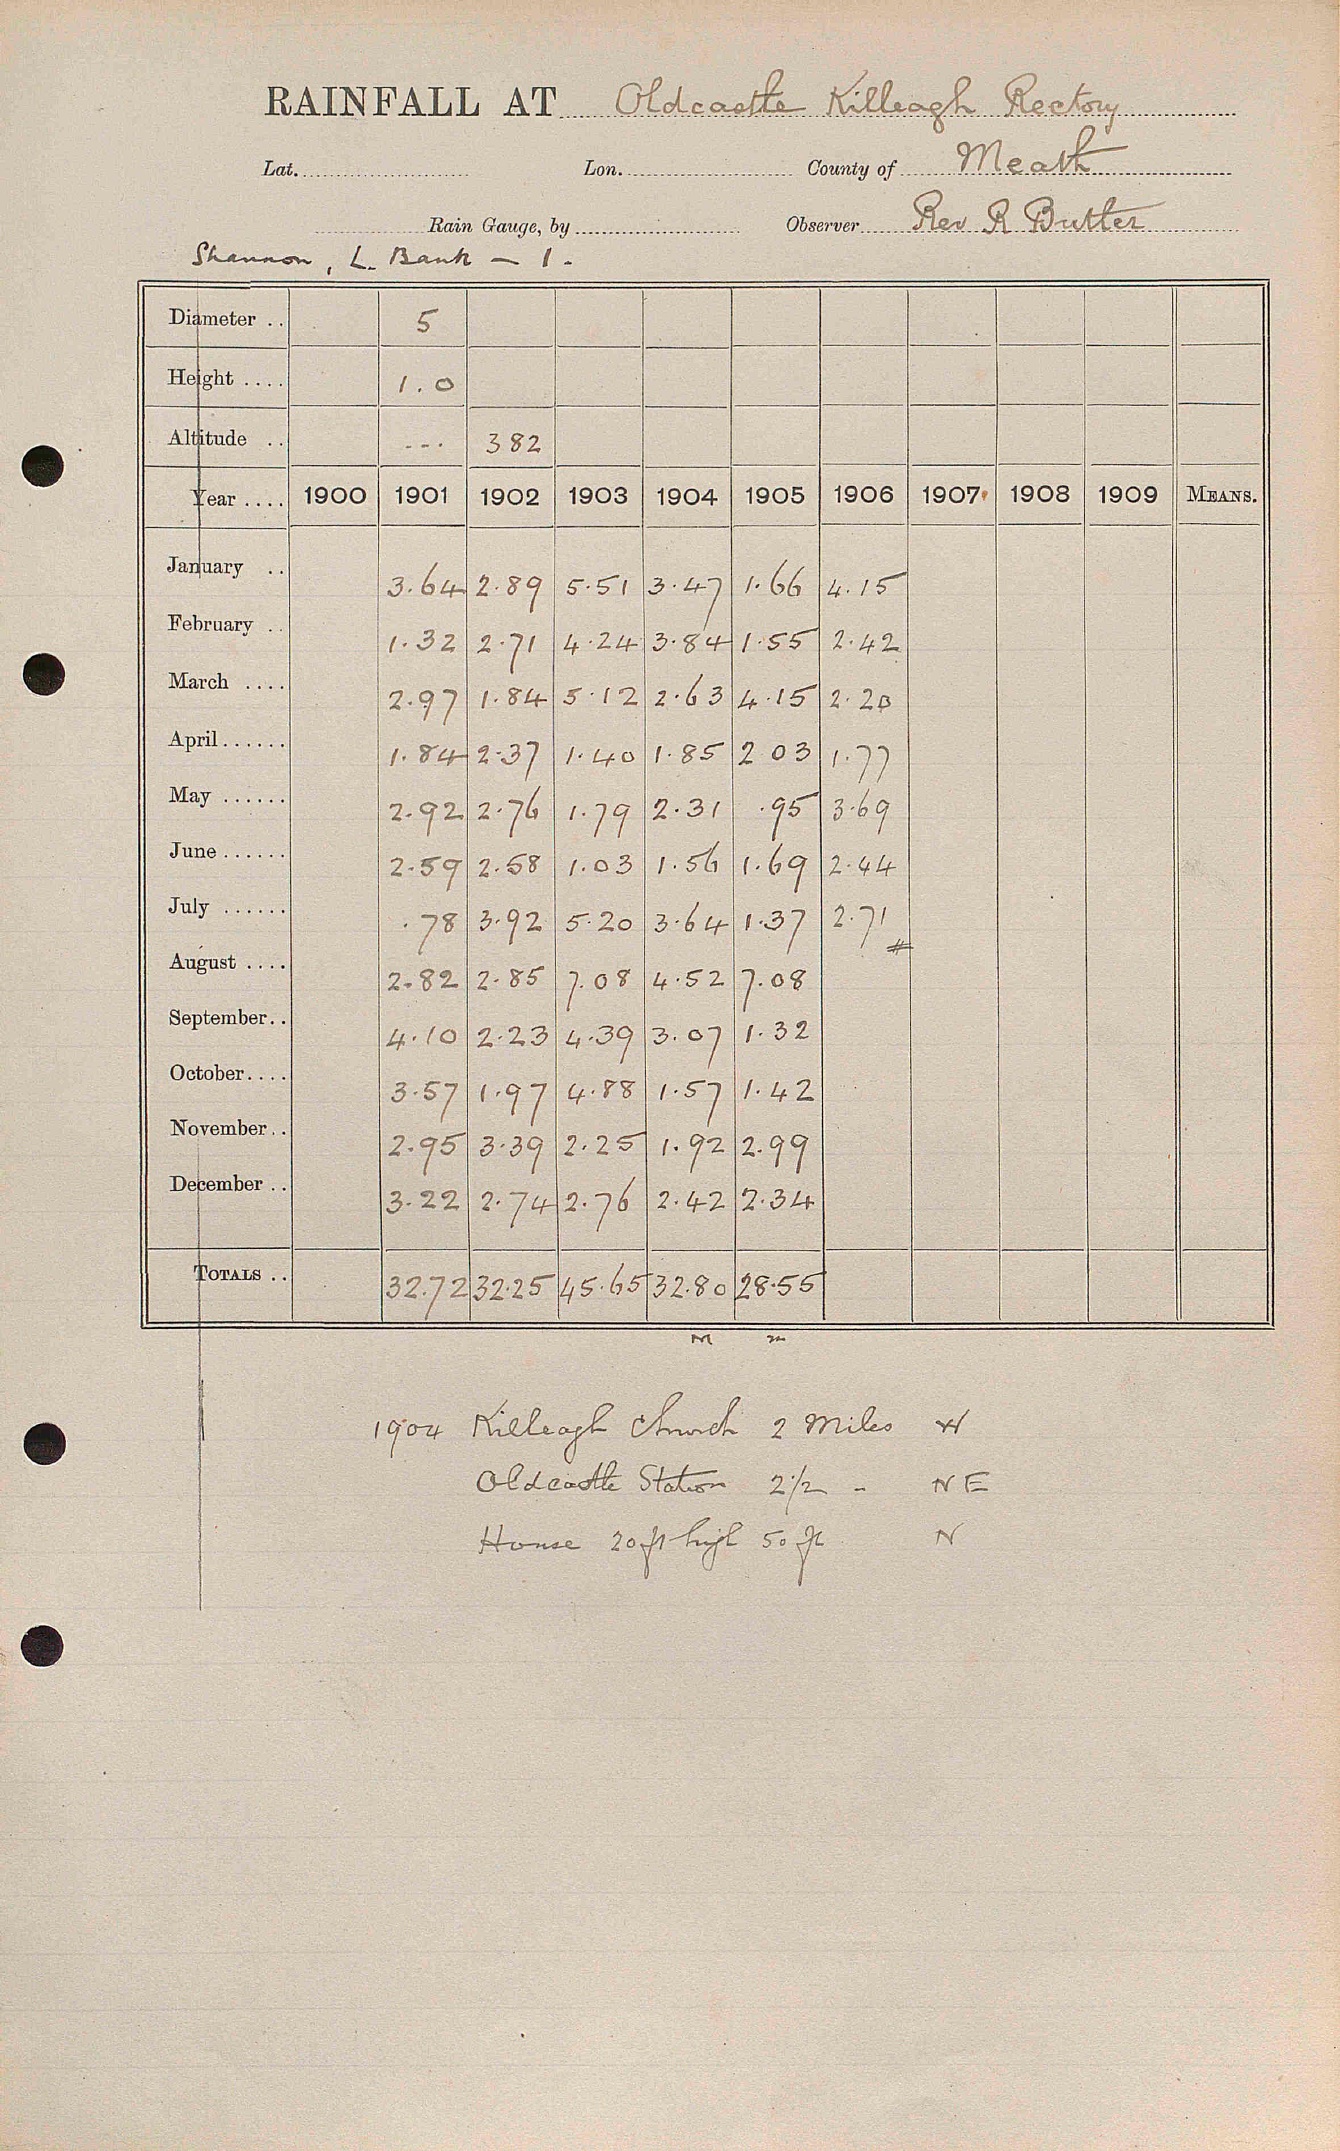 RAINFALL AT Oldcastle Killeagh Rectory
Lat. Lon. County of Meath
Rain Gauge, by Observer Rev R Butler
Shannon, L. Bank - 1.
Diameter .. 5
Height .... 1.0
Altitude .. --- 382
Year .... 1900 1901 1902 1903 1904 1905 1906 1907 1908 1909 MEANS.
January .. 3.64 2.89 5.51 3.47 1.66 4.15
February .. 1.32 2.71 4.24 3.84 1.55 2.42
March .... 2.97 1.84 5.12 2.63 4.15 2.20
April...... 1.84 2.37 1.40 1.85 2 03 1.77
May ...... 2.92 2.76 1.79 2.31 .95 3.69
June ...... 2.59 2.58 1.03 1.56 1.69 2.44
July ...... .78 3.92 5.20 3.64 1.37 2.71 #
August .... 2.82 2.85 7.08 4.52 7.08
September.. 4.10 2.23 4.39 3.07 1.32
October.... 3.57 1.97 4.88 1.57 1.42
November.. 2.95 3.39 2.25 1.92 2.99
December .. 3.22 2.74 2.76 2.42 2.34
TOTALS .. 32.72 32.25 45.65 32.80 28.55
M m
1904 Killeagh Church 2 Miles W
Oldcastle Station 2 1/2 - NE
House 20 ft high 50 ft N